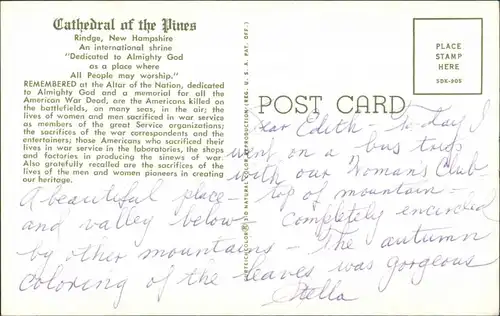 Cathedral of the Pines
Rindge, New Hampshire
An international shrine
"Dedicated to Almighty God
as a place where
All People may worship."
REMEMBERED at the Altar of the Nation, dedicated
to Almighty God and a memorial for all the
American War Dead, are the Americans killed on
the battlefields, on many seas, in the air; the
lives of women and men sacrificed in war service
as members of the great Service organizations;
the sacrifices of the war correspondents and the
entertainers; those Americans who sacrificed their
lives in war service in the laboratories, the shops
and factories in producing the sinews of war.
Also gratefully recalled are the sacrifices of the
lives of the men and women pioneers in creating
our heritage.
NATURAL COLOR REPRODUCTION (REG. U. S. A. PAT. OFF.)
POST CARD
PLACE
STAMP
HERE
SDK-905
Dear Edith - To-day I
went on a bus trip
with our Womans Club
A beautiful place - top of mountain -
and valley below - completely encircled
by other mountains - The autumn
coloring of the leaves was gorgeous
Stella